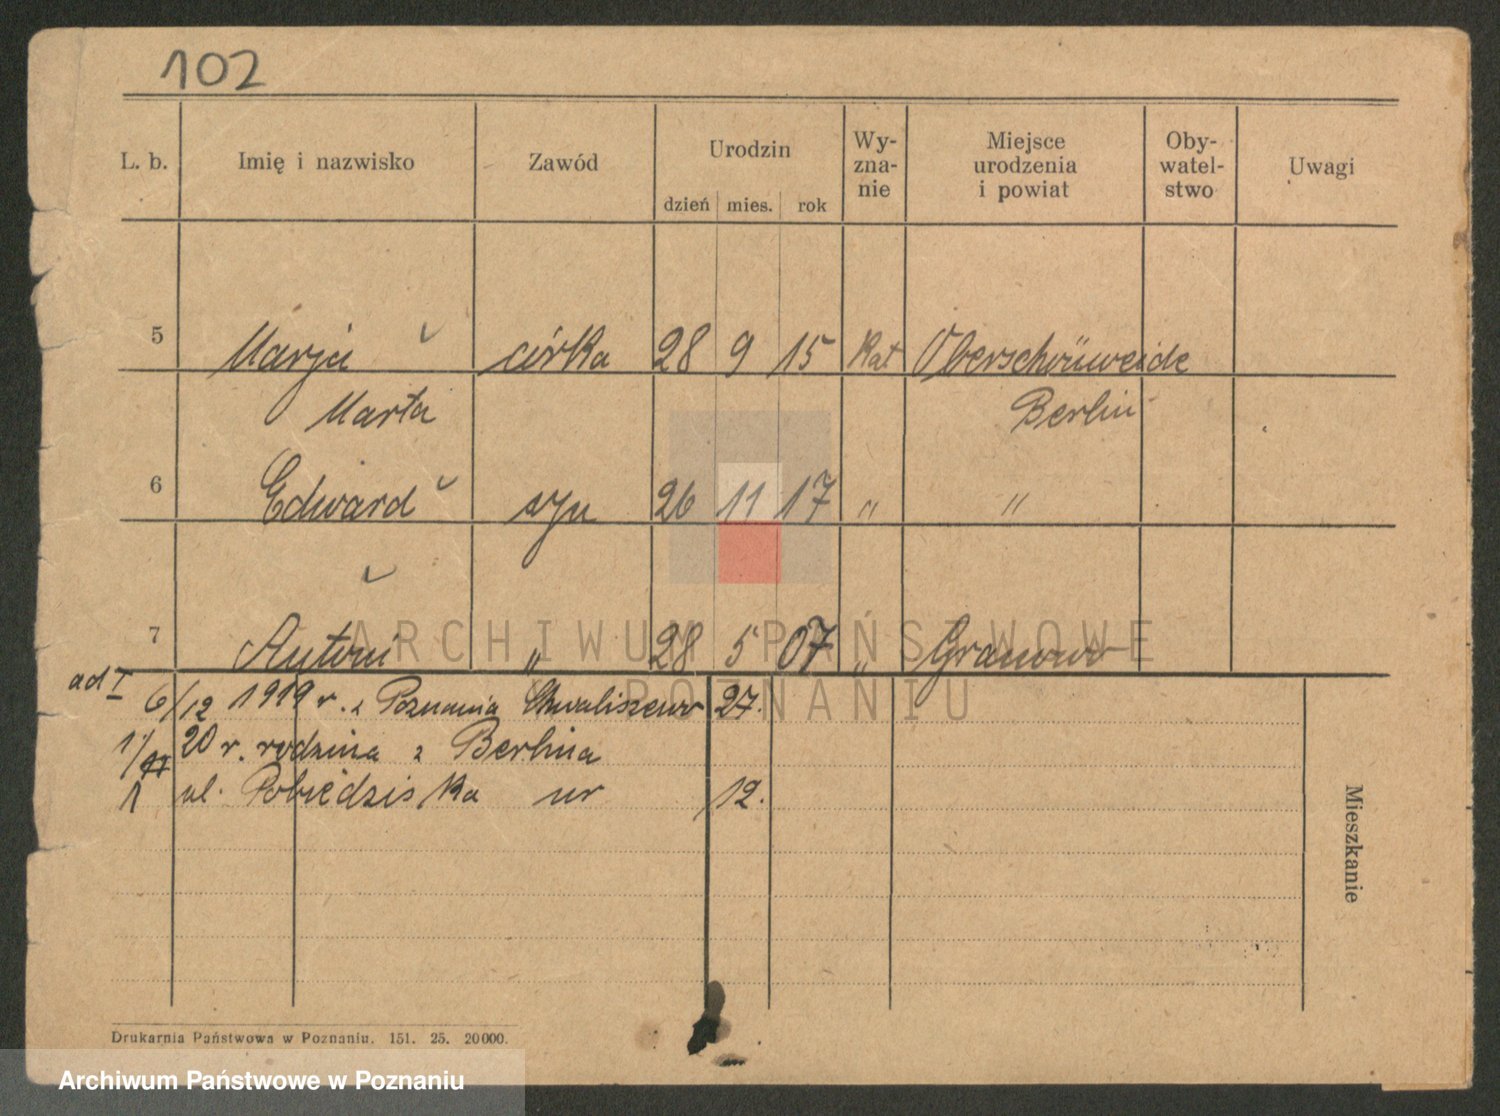 102
L. b. Imię i nazwisko Zawód Urodzin Wy-zna-nie Miejsce urodzenia i powiat Oby-watel-stwo Uwagi
dzień mies. rok
5 Marja córka 28 9 15 Kat Oberschöneweide
Marta Berlin
6 Edward syn 26 11 17 " "
7 Antoni " 28 5 07 " Granowo
ARCHIWUM PAŃSTWOWE
W POZNANIU
ad I 6/12 1919 r. z Poznania Chwaliszewo 27.
20 r. rodzina z Berlina
1 ul. Pobiedziska nr 12.
Mieszkanie
Drukarnia Państwowa w Poznaniu. 151. 25. 20000.
Archiwum Państwowe w Poznaniu